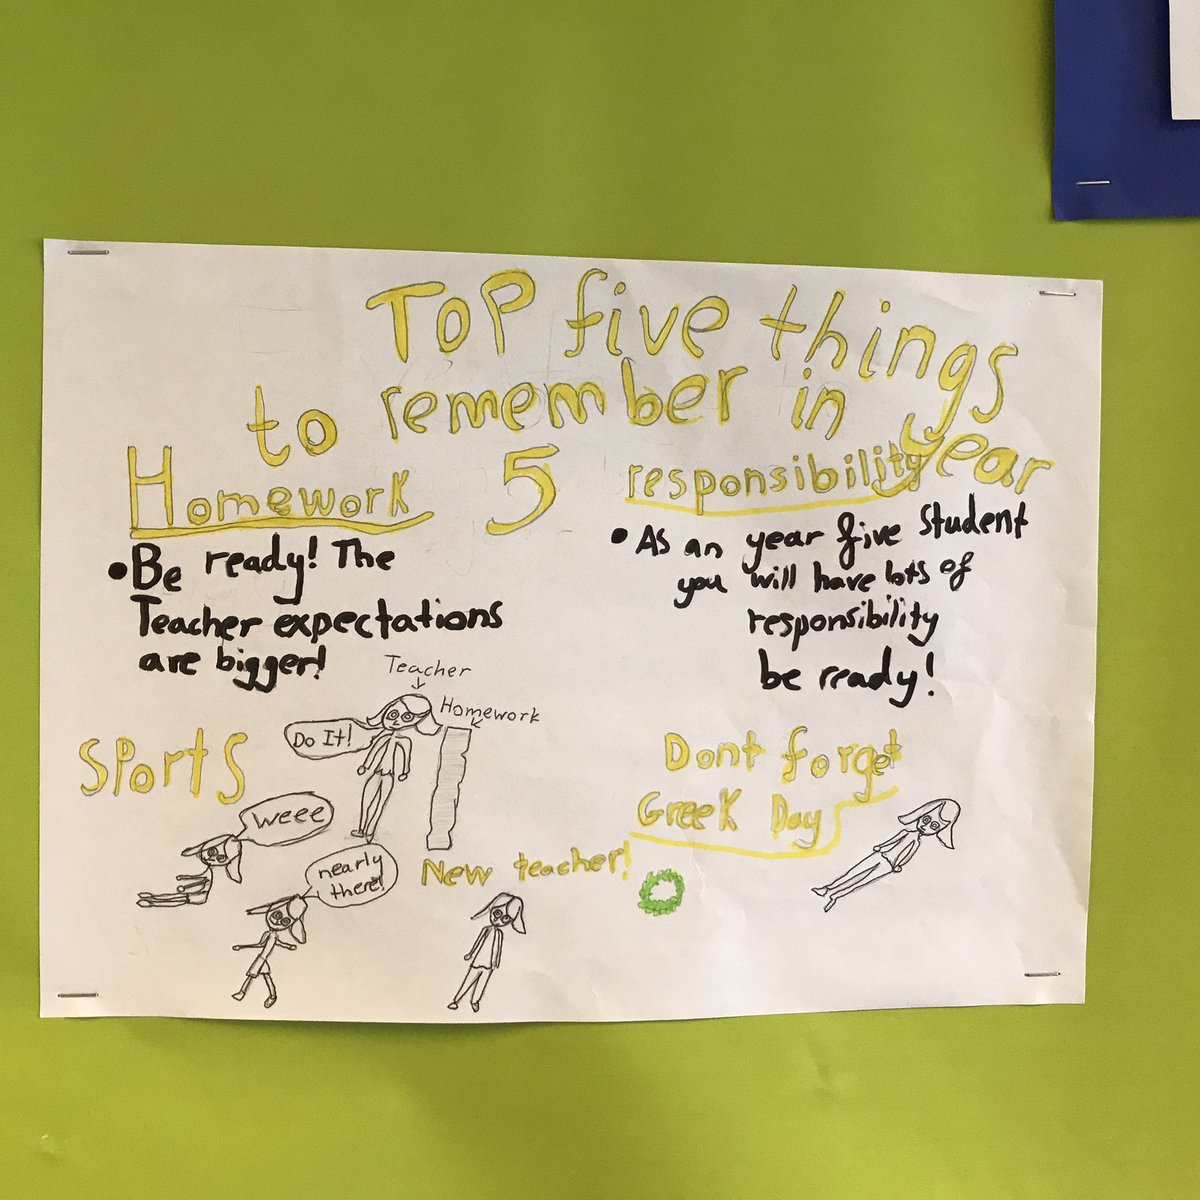 Top five things
to remember in year
5
Homework
• Be ready! The
Teacher expectations
are bigger!
responsibility
• As an year five student
you will have lots of
responsibility
be ready!
Teacher
Homework
Do It!
Sports
weee
nearly
there!
New teacher!
Dont forget
Greek Day